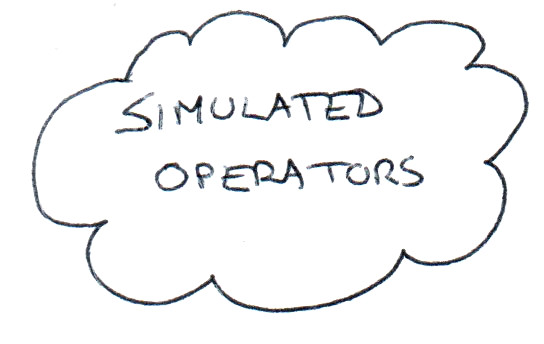 SIMULATED
OPERATORS